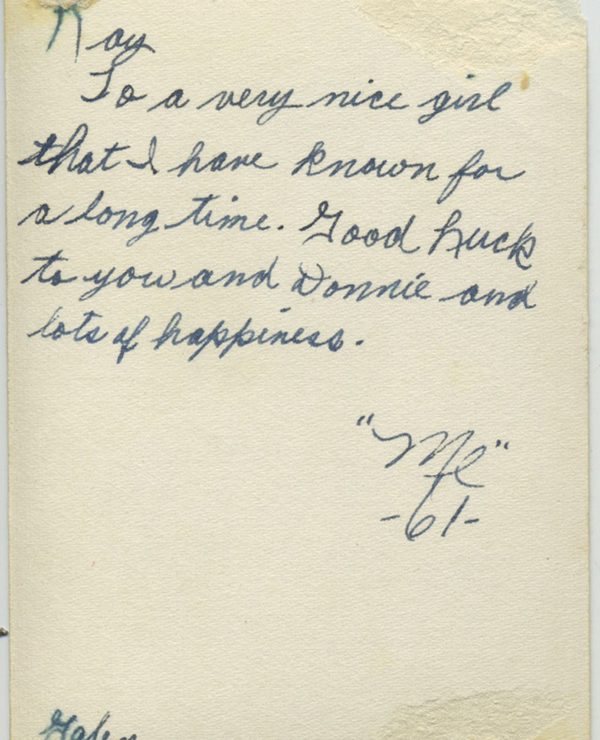 To a very nice girl
that I have known for
a long time. Good Luck
to you and Donnie and
lots of happiness.
"Me"
-61-
Galen